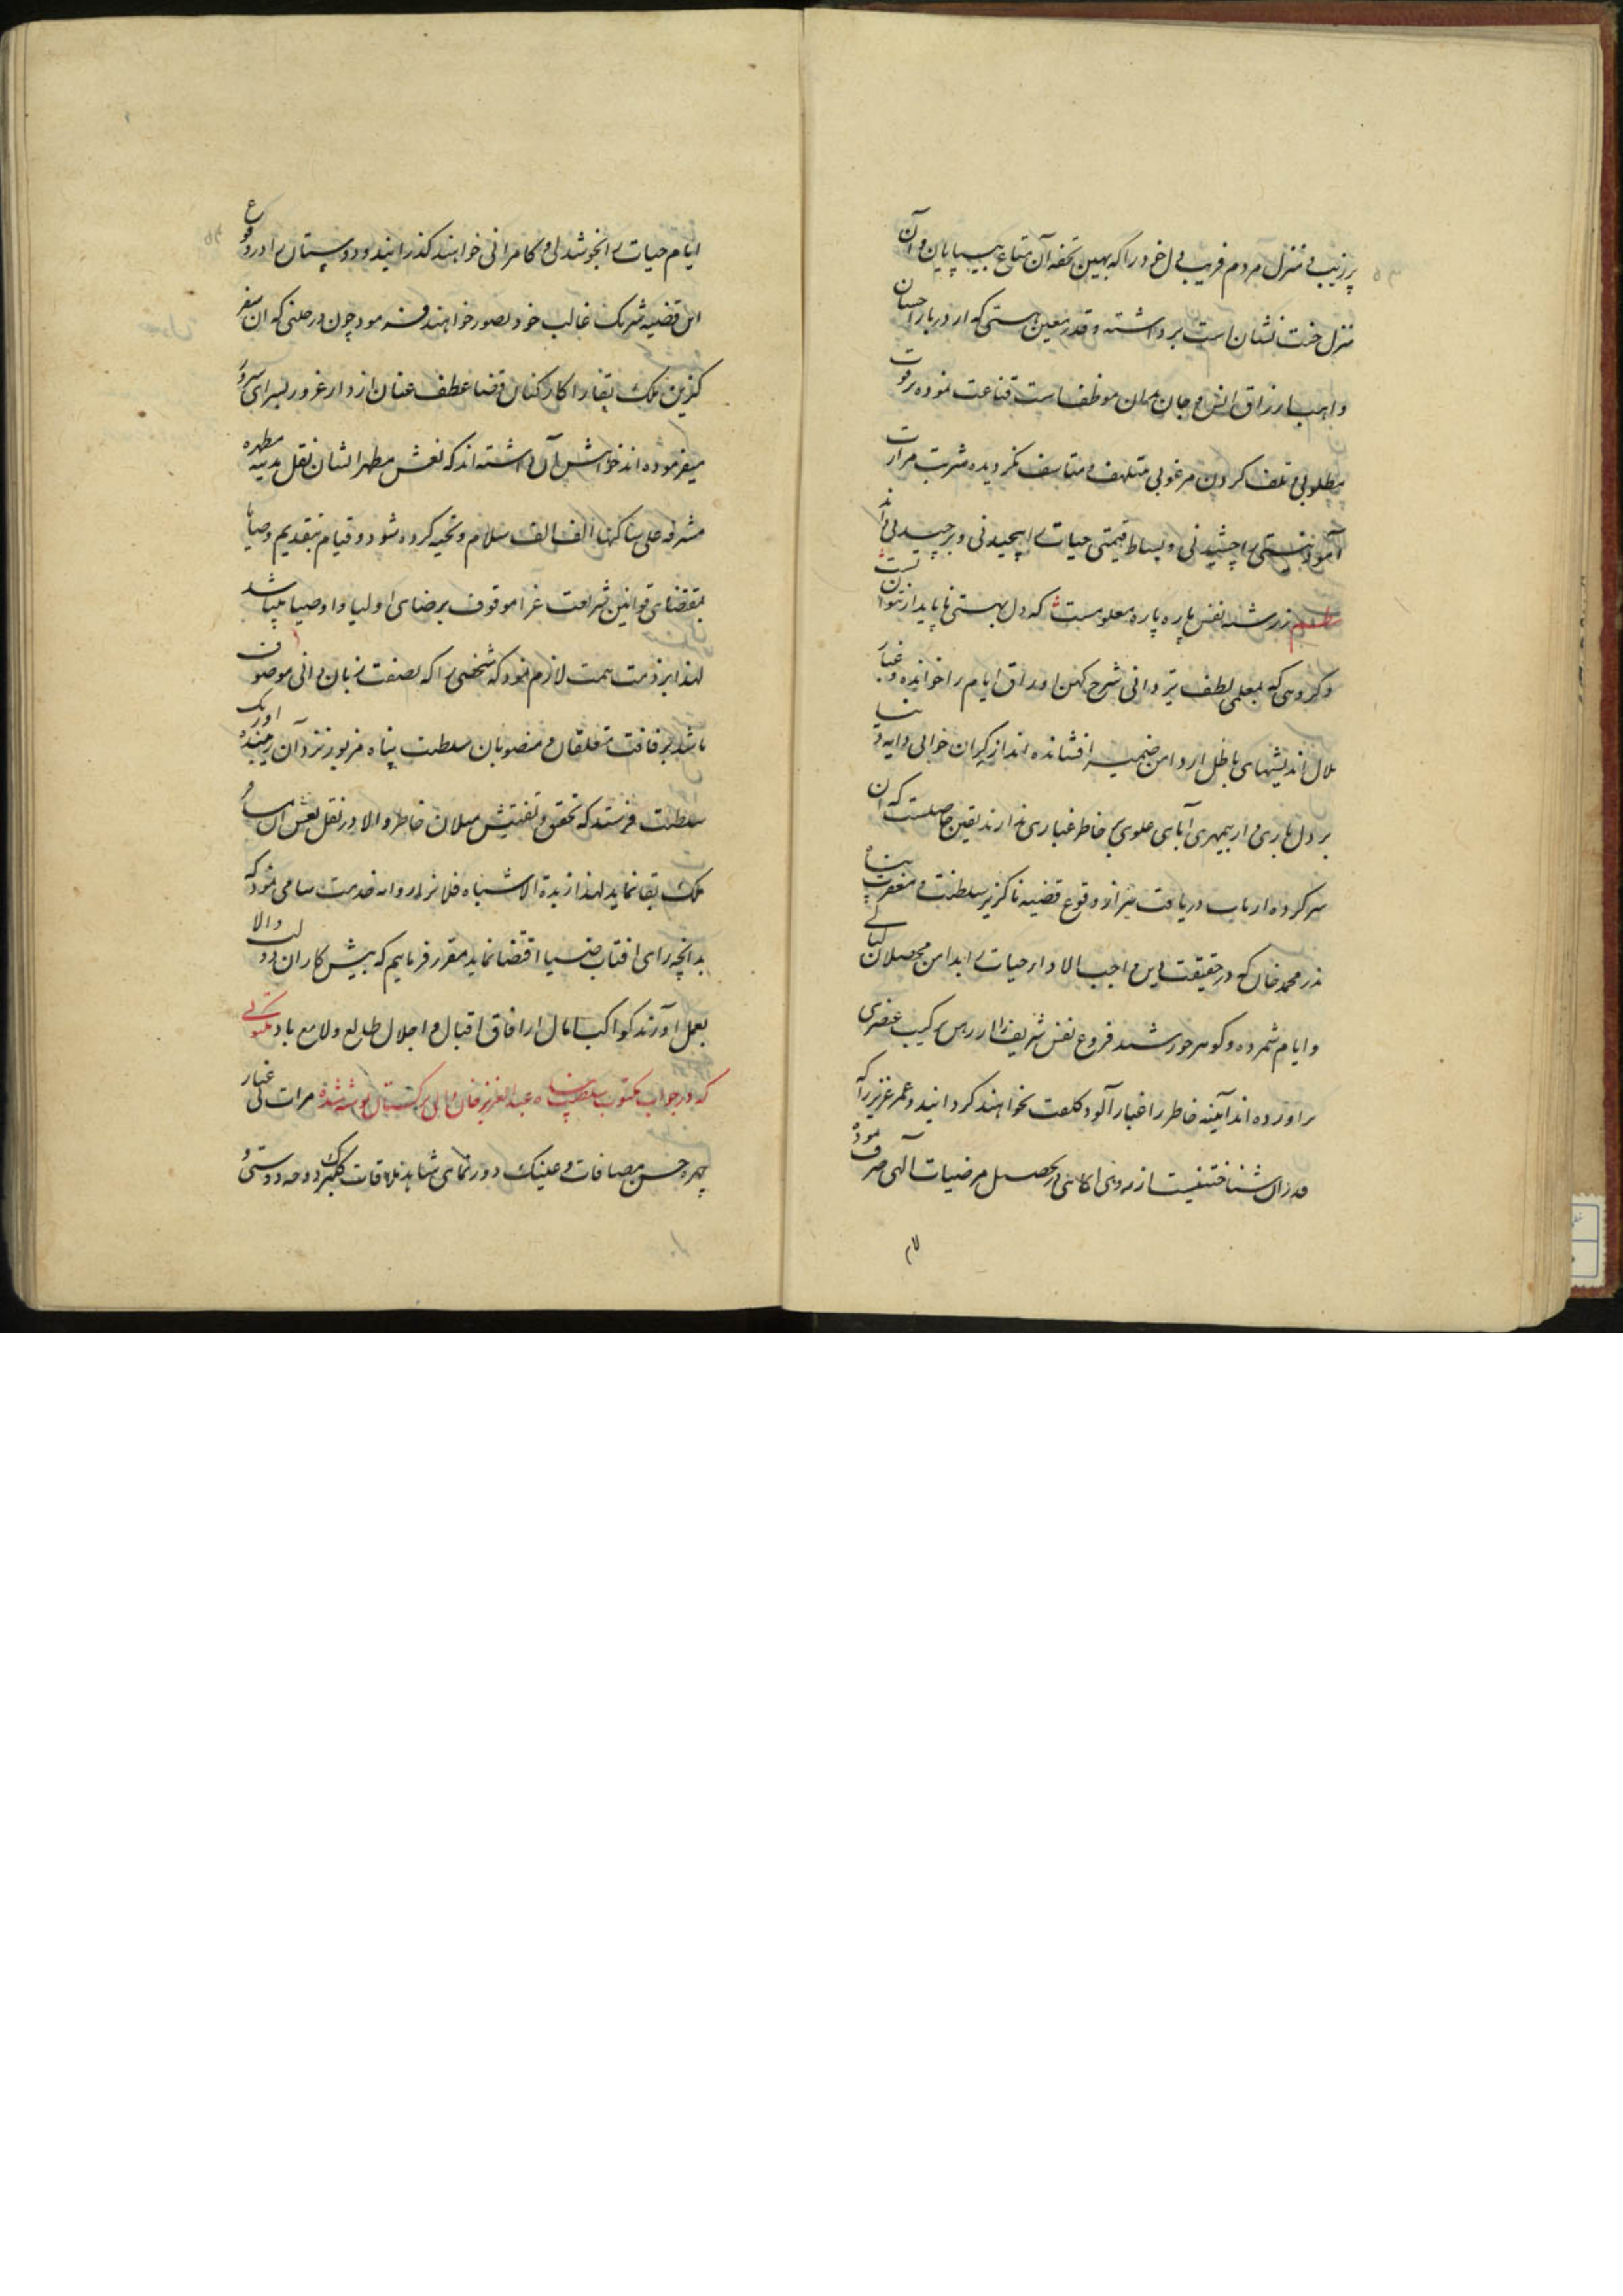 پر زیب و منزل مردم فریب دل خود را که بهین تحفه آن متاع بیپایان و آن
منزل خت نشان است برداشته و قدر معین هستی که از دربار احسان
واهب ارزاق انس و جان موظف است قناعت نموده بر فوت
مطلوبی و تلف کردن مرغوبی متلهف و متاسف نگردیده شربت مرارت
آمود نیستی را چشیدنی و بساط قیمتی حیات را پیچیدنی و برچیدنی داند
نظم ز رشته نفس پاره پاره معلومست که دل بهستی ناپایدار نتوان بست
و گروهی که بمعلمی لطف یزدانی شرح کهن اوراق ایام را خوانده و غبار
ملال اندیشهای باطل از دامن ضمیر افشانده اند از گران خوابی دایه دنیا
بر دل باری و از بیمهری آبای علوی بر خاطر غباری ندارند یقین حاصلست که آن
سرکرده ارباب دریافت نیز از وقوع قضیه ناگزیر سلطنت و مغفرت پناه
نذر محمد خان که در حقیقت دین واجب الادا در حیات را بدامن محصلان لیالی
و ایام شمرده و گوهر خورشید فروغ نفس شریف را از درس ترکیب عنصری
برآورده اند آیینه خاطر را غبار آلود کلفت نخواهند گردانید و عمر عزیز را که
قدر آن شناختنیست از روی آگاهی در تحصیل مرضیات الهی صرف نموده
ایام حیات را بخوشدلی و کامرانی خواهند گذرانید و دوستان را در وقوع
این قضیه شریک غالب خود تصور خواهند فرمود چون در حلتی که آن سفر
گزین ملک بقا را کارکنان قضا عطف عنان از دار غرور بسرای سرور
میفرموده اند خواهش آن داشته اند که نعش مطهر ایشان نقل مدینه مطهره
مشرفه علی ساکنها الف الف سلام و تحیه کرده شود و قیام بتقدیم وصایا
بمقتضای قوانین شریعت غرا موقوف برضای اولیا و اوصیا میباشد
لهذا بر ذمت همت لازم نمود که شخصی را که بصفت زبان دانی موصوف
باشد برفاقت متعلقان و منصوبان سلطنت پناه مزبور نزد آن زیبنده اورنک
سلطنت فرستد که تحقیق و تفتیش میلان خاطر والا در نقل نعش آن مسافر
ملک بقا نماید لهذا زبدة الاشباه فلانرا روانه خدمت سامی نمود که
بدانچه رای افتاب ضیا اقتضا نماید مقرر فرماییم که پیش کاران دولت والا
بعمل آورند کواکب امال از افاق اقبال و اجلال طالع و لامع باد مکتوبی
که در جواب مکتوب سلطنت پناه عبد العزیز خان والی ترکستان نوشته شده مرات بی غبار
چهره حسن مصافات و عینک دورنمای شاهد ملاقات گلبرگ دوحه دوستی و